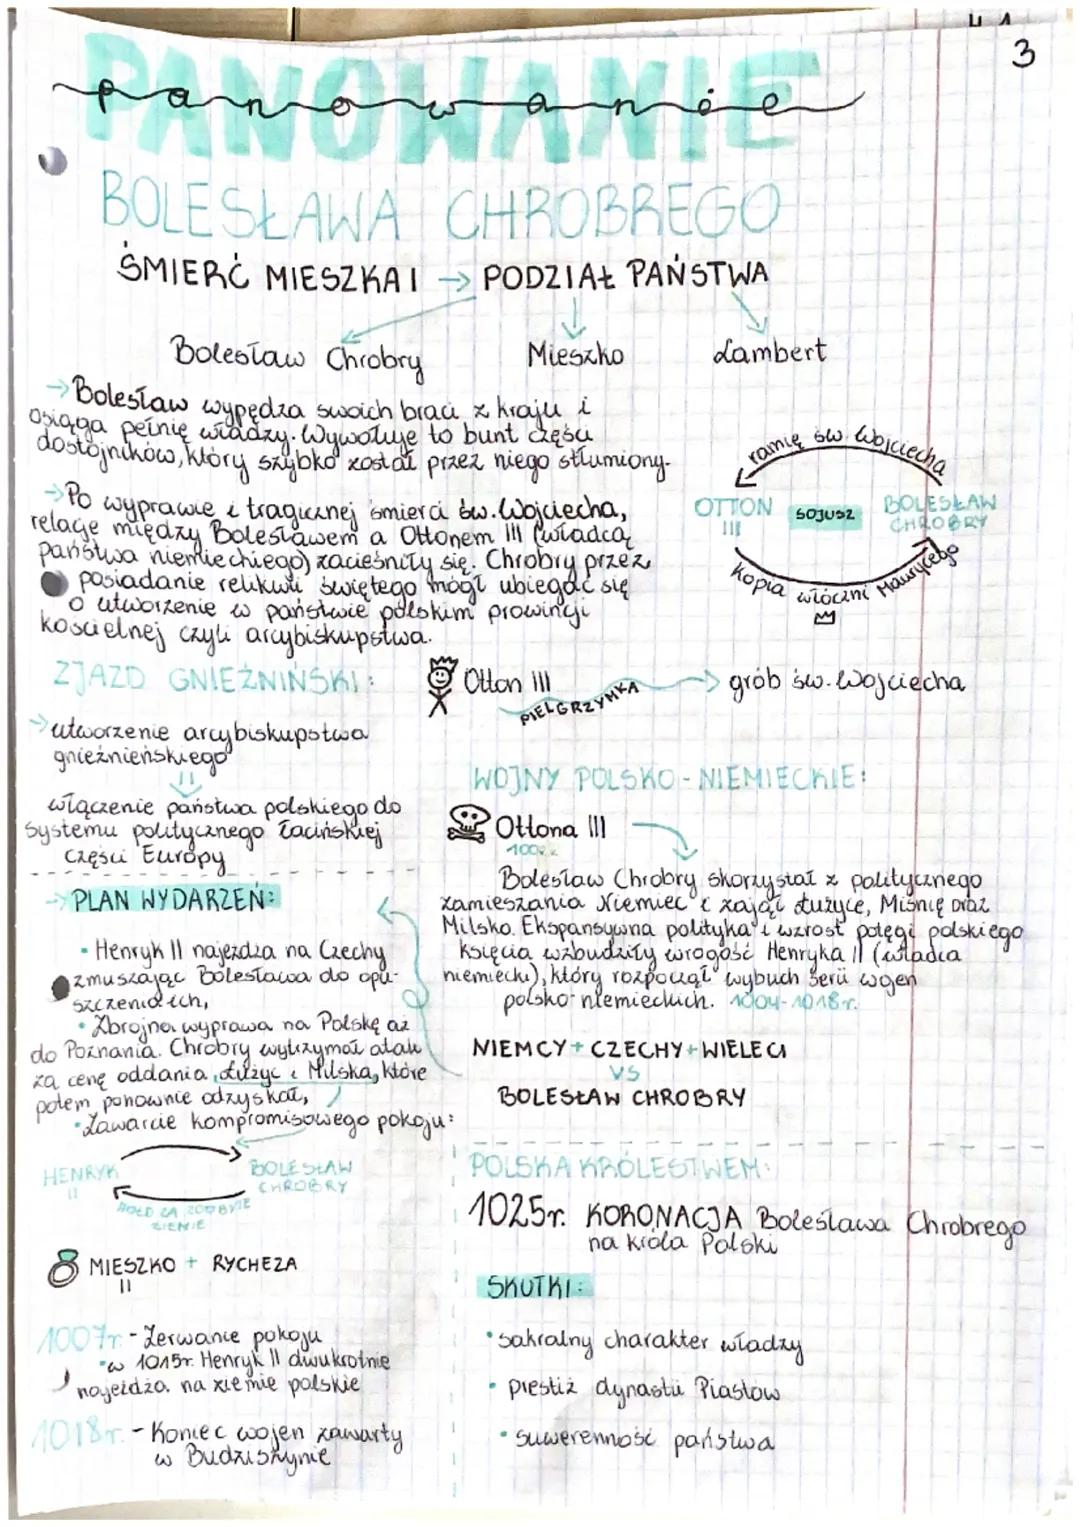 3
PANOWANIE
panowanie
BOLESŁAWA CHROBREGO
ŚMIERĆ MIESZKA I → PODZIAŁ PAŃSTWA
Bolesław Chrobry Mieszko Lambert
→ Bolesław wypędza swoich braci z kraju i
osiąga pełnię władzy. Wywołuje to bunt części
dostojników, który szybko został przez niego stłumiony.
→ Po wyprawie i tragicznej śmierci św. Wojciecha,
relacje między Bolesławem a Ottonem III (władcą
państwa niemieckiego) zacieśniły się. Chrobry przez
posiadanie relikwii świętego mógł ubiegać się
o utworzenie w państwie polskim prowincji
kościelnej czyli arcybiskupstwa.
ramię św. Wojciecha
OTTON III SOJUSZ BOLESŁAW CHROBRY
Kopia włóczni Maurycego
ZJAZD GNIEŹNIŃSKI:
Otton III PIELGRZYMKA → grób św. Wojciecha
→ utworzenie arcybiskupstwa
gnieźnieńskiego
włączenie państwa polskiego do
systemu politycznego łacińskiej
części Europy
WOJNY POLSKO-NIEMIECKIE:
Ottona III
Bolesław Chrobry skorzystał z politycznego
zamieszania Niemiec i zajął Łużyce, Miśnię oraz
Milsko. Ekspansywna polityka i wzrost potęgi polskiego
księcia wzbudziły wrogość Henryka II (władca
niemiecki), który rozpoczął wybuch serii wojen
polsko-niemieckich. 1004-1018r.
NIEMCY + CZECHY + WIELECI
VS
BOLESŁAW CHROBRY
→ PLAN WYDARZEŃ:
• Henryk II najeżdża na Czechy
zmuszając Bolesława do opu-
szczenia ich,
• Zbrojna wyprawa na Polskę aż
do Poznania. Chrobry wytrzymał atak
za cenę oddania Łużyc i Milska, które
potem ponownie odzyskał,
• Zawarcie kompromisowego pokoju:
HENRYK II BOLESŁAW CHROBRY
HOŁD ZA ZDOBYTE
ZIEMIE
MIESZKO II + RYCHEZA
1007r. - Zerwanie pokoju
• w 1015r. Henryk II dwukrotnie
najeżdża na ziemie polskie
1018r. - Koniec wojen zawarty
w Budziszynie
POLSKA KRÓLESTWEM:
1025r. KORONACJA Bolesława Chrobrego
na króla Polski
SKUTKI:
• sakralny charakter władzy
• prestiż dynastii Piastów
• suwerenność państwa